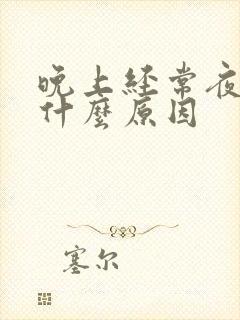 晚上经常夜
什麼原因
塞尔